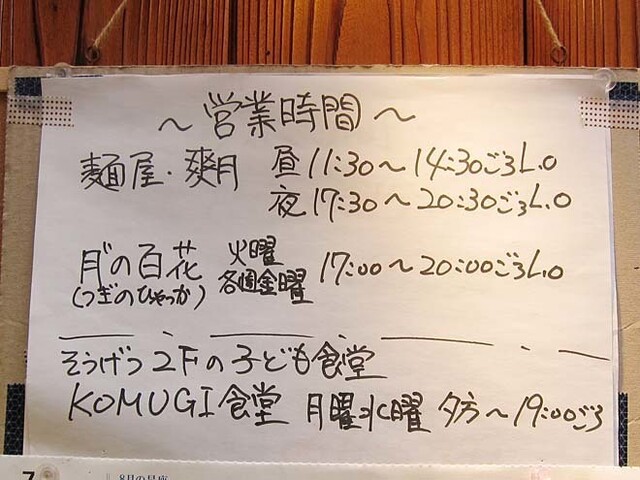 ～営業時間～
麺屋・爽月 昼11:30～14:30ごろL.O
夜17:30～20:30ごろL.O
月゛の百花 火曜 17:00～20:00ごろL.O
(つぎのひゃっか) 各週金曜
そうげつ2Fの子ども食堂
KOMUGI食堂 月曜水曜 夕方～19:00ごろ
7 8月の星座